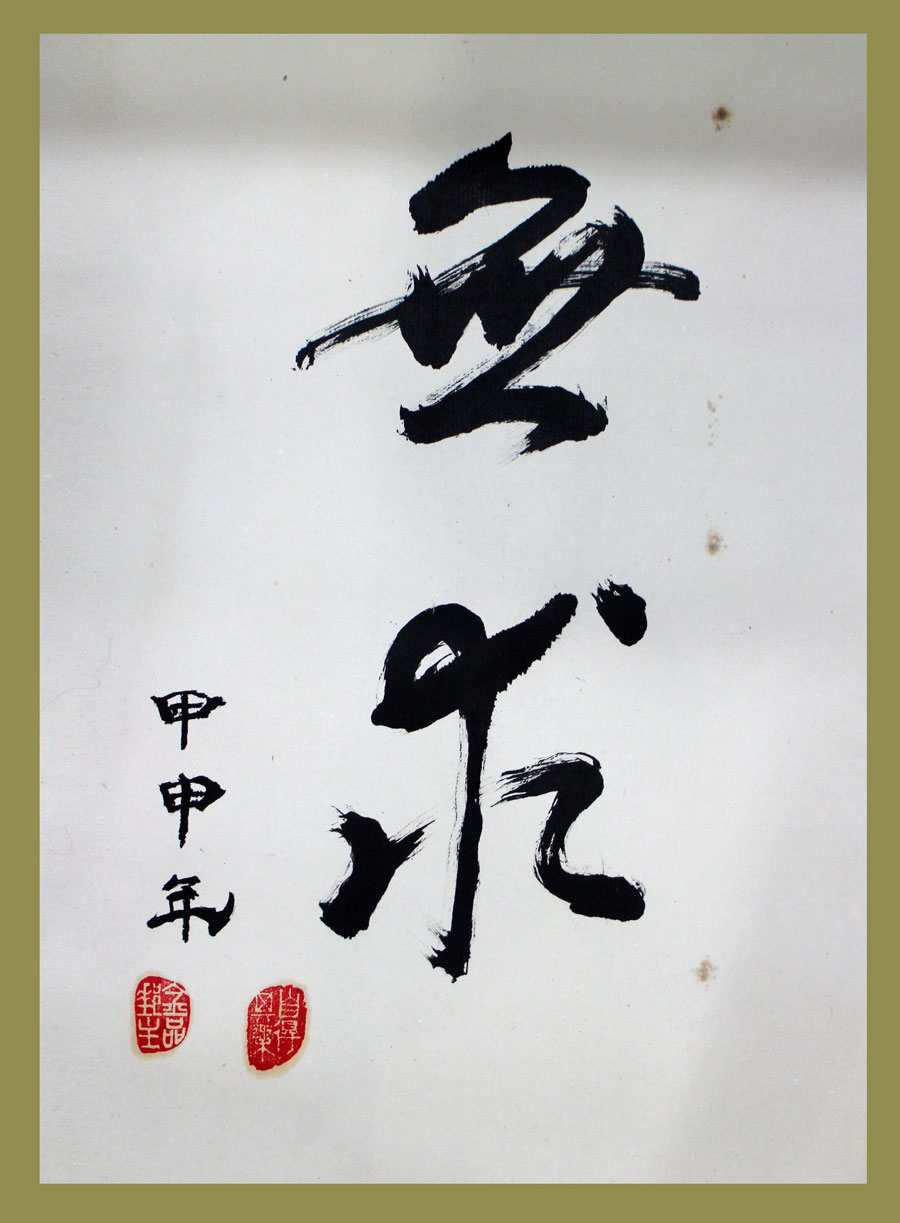 無求
甲申年
自得其樂